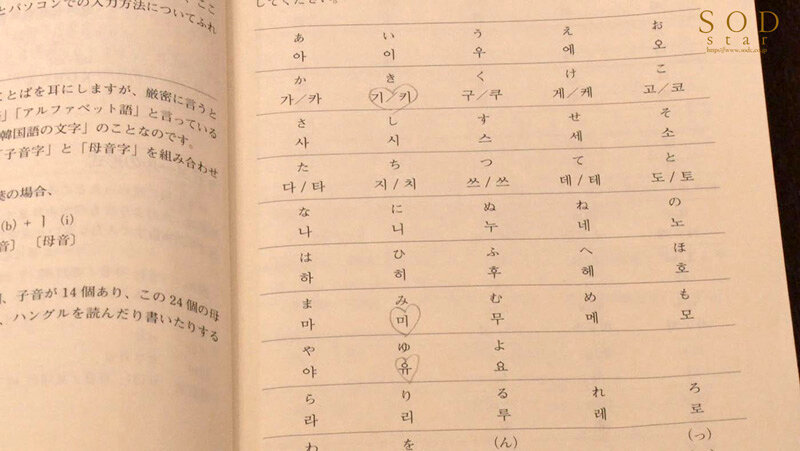 とパソコンでの入力方法についてふれ
ことばを耳にしますが、厳密に言うと
」「アルファベット語」と言っている
韓国語の文字」のことなのです。
「子音字」と「母音字」を組み合わせ
葉の場合、
(b) + ㅣ (i)
音〕 〔母音〕
、子音が14個あり、この24個の母
、ハングルを読んだり書いたりする
してください。
あ い う え お
아 이 우 에 오
か き く け こ
가/카 기/키 구/쿠 게/케 고/코
さ し す せ そ
사 시 스 세 소
た ち つ て と
다/타 지/치 쓰/쓰 데/테 도/토
な に ぬ ね の
나 니 누 네 노
は ひ ふ へ ほ
하 히 후 헤 호
ま み む め も
마 미 무 메 모
や ゆ よ
야 유 요
ら り る れ ろ
라 리 루 레 로
わ を (ん) (っ)
SOD
star
http://www.sodc.co.jp